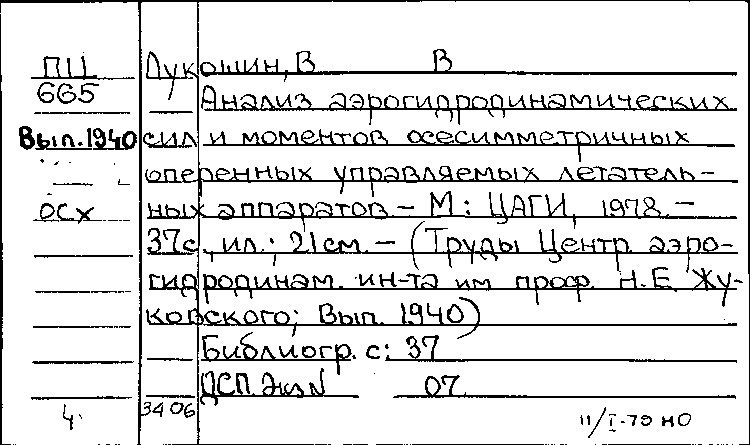 ПЦ Лукошин, В В
665 Анализ аэрогидродинамических
Вып. 1940 сил и моментов осесимметричных
оперенных управляемых летатель-
осх ных аппаратов – М: ЦАГИ, 1978. –
37с., ил.; 21см. – (Труды Центр аэро-
гидродинам. ин-та им проф. Н.Е Жу-
ковского; Вып. 1940)
Библиогр. с: 37
ДСП. Экз N 07
4. 3406 11/I-79 НО